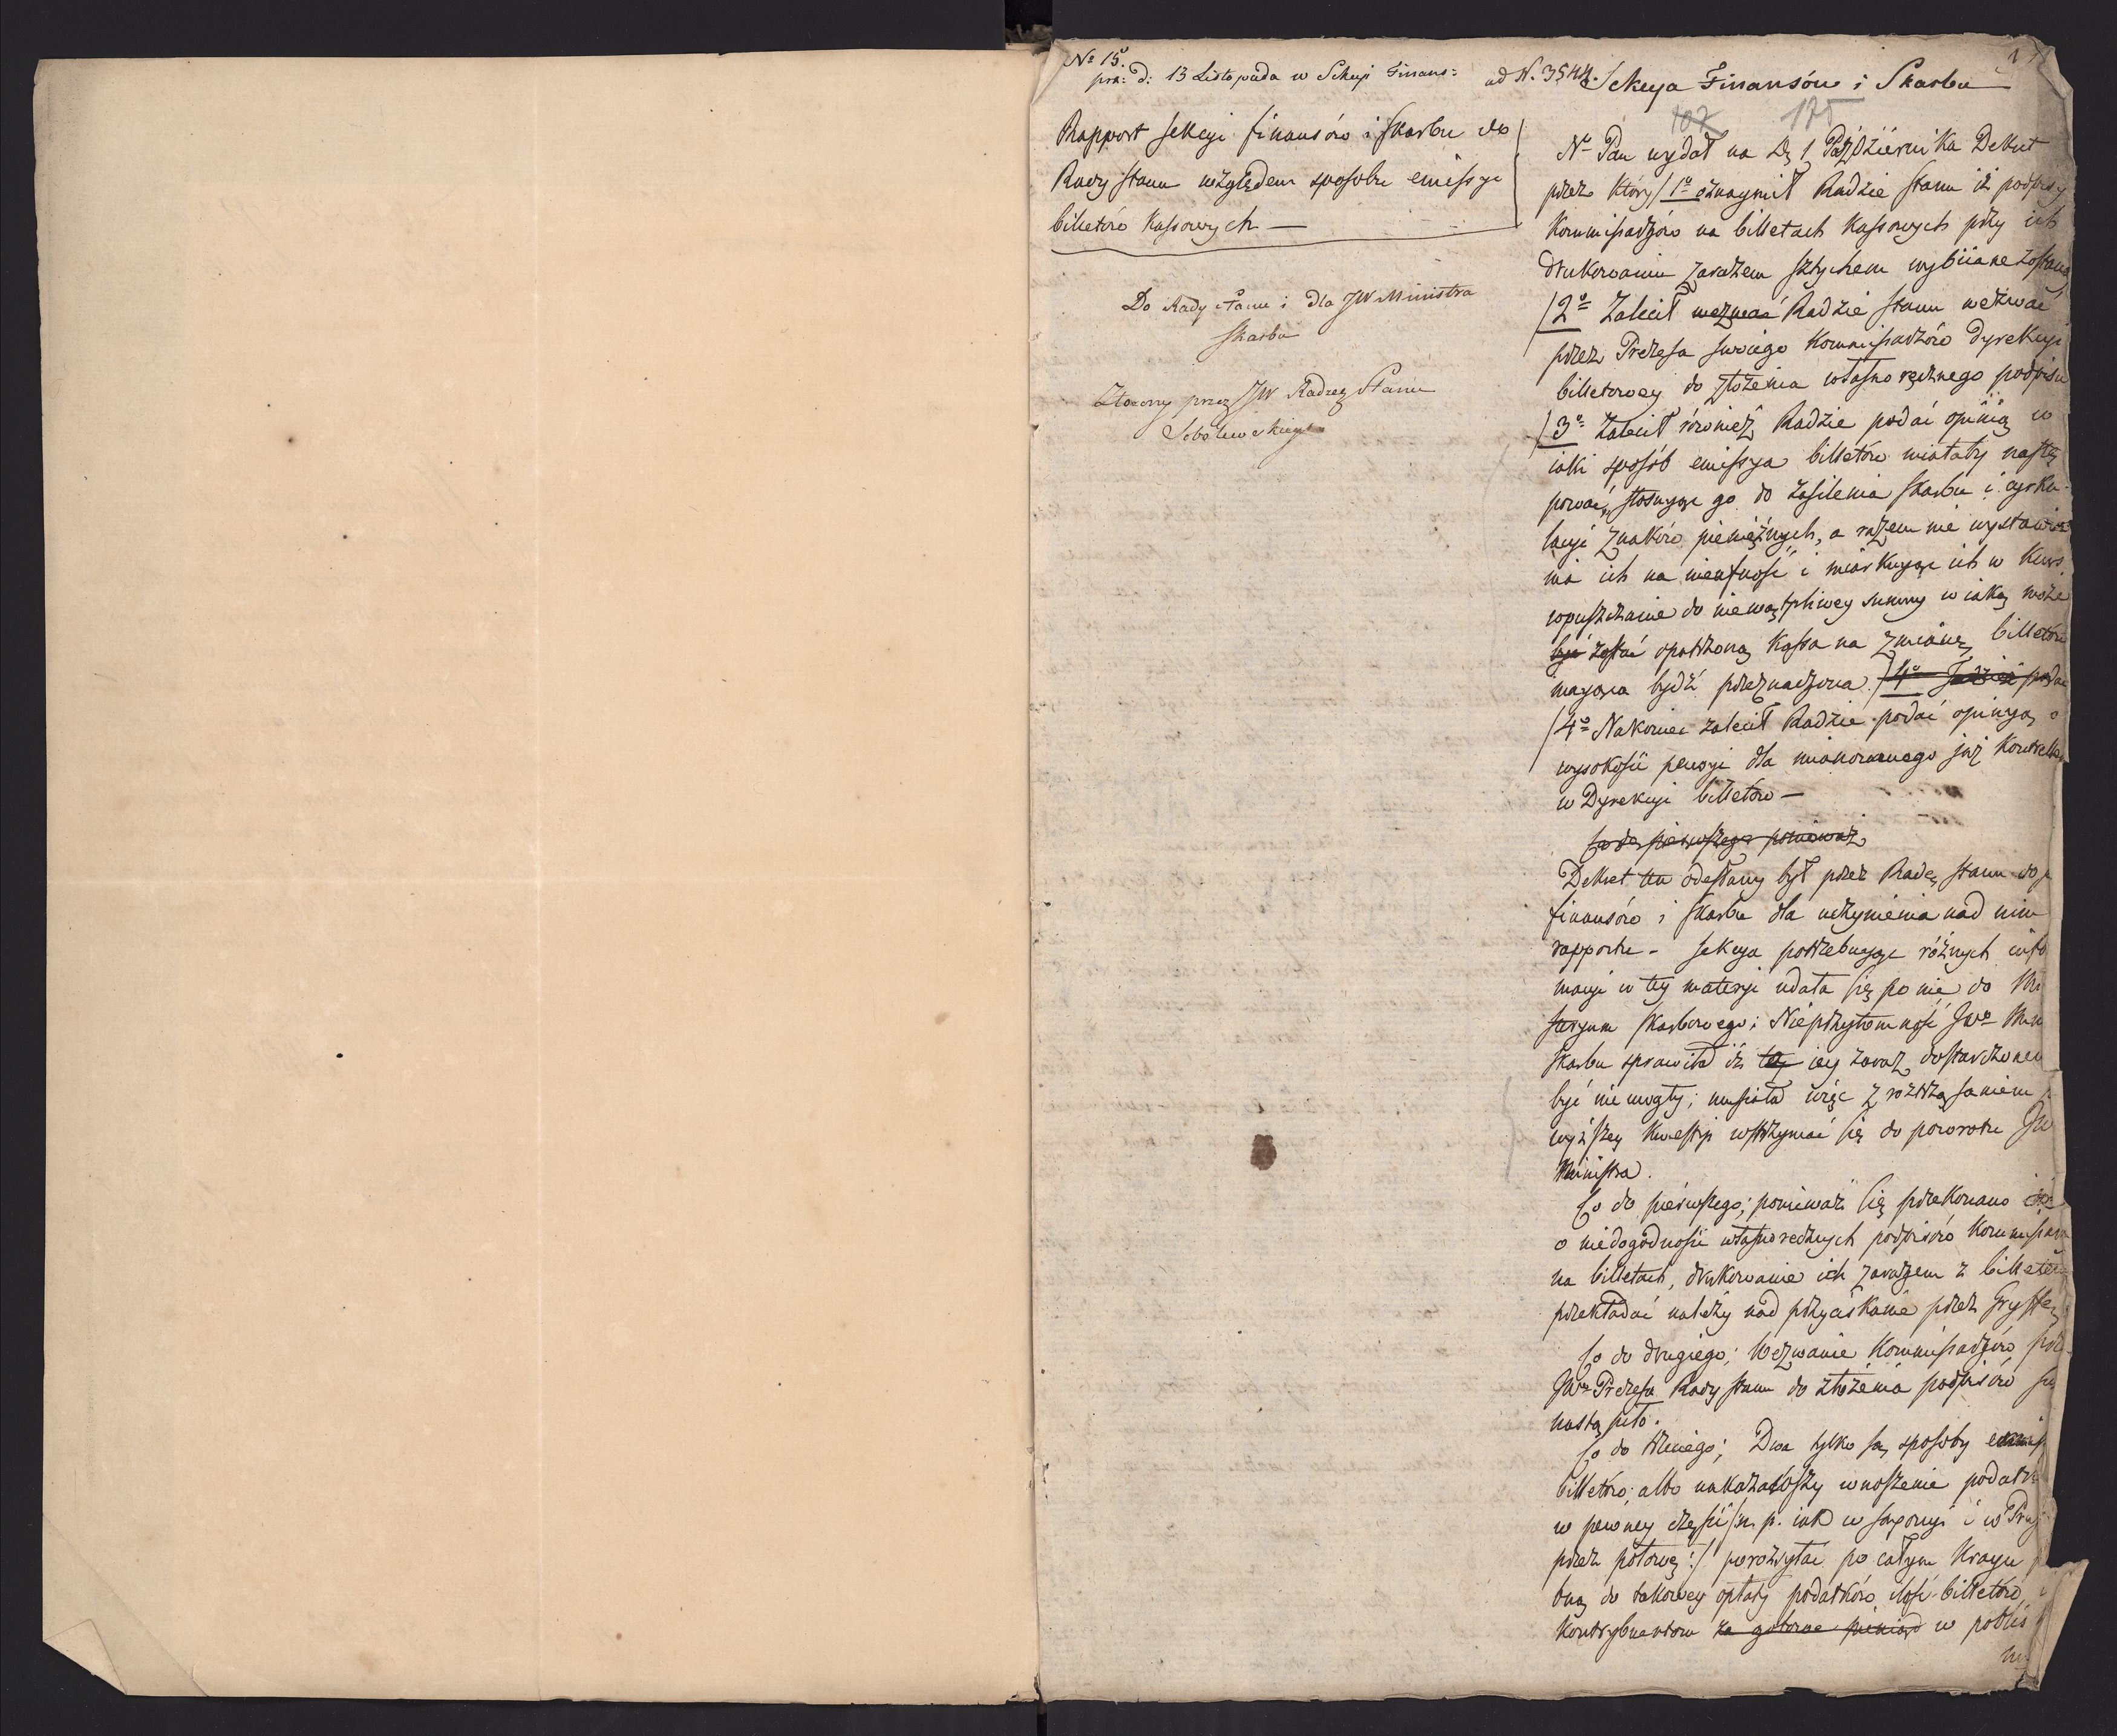 No 15.
pra: d: 13 Listopada w Sekcyi Finans:
Rapport sekcyi finansów i skarbu do
Rady stanu względem sposobu emissyi
billetów kassowych —
Do Rady Stanu i dla JW Ministra
Skarbu
Złożony przez JW Radzcę Stanu
Sobolewskiego
ad N. 3544. Sekcya Finansów i Skarbu
107 175
Nº Pan wydał na D. 1 Paździérnika Dekret
przez który / 1º oznaymił Radzie stanu iż podpisy
Kommissarzów na billetach kassowych przy ich
drukowaniu zarazem sztychem wybiiane zostaną
/2º Zalecił wezwać Radzie stanu wezwać
przez Prezesa swoiego Kommissarzów Dyrekcyi
billetowey do złożenia własno ręcznego podpisu
/3º Zalecił również Radzie podać opinią w
iaki sposób emissya billetów miałaby nastę
pować, stosuiąc go do zasilenia skarbu i cyrku-
lacyi znaków pieniężnych, a razem nie wystawie
nia ich na nieufność i miarkuiąc ich w kurs
wpuszczanie do niewątpliwey summy w iaką może
być zostać opatrzoną kassa na zmianę billetów
maiąca bydź przeznaczona. /4º
/4º Nakoniec zalecił Radzie podać opinią o
wysokości pensyi dla mianowanego już Kontroller
w Dyrekcyi billetów —
Co do pierwszego ponieważ
Dekret ten odesłany był przez Radę stanu do
finansów i skarbu dla uczynienia nad nim
rapportu - Sekcya potrzebuiąc różnych info
macyi w tey materyi udała się po nie do Mi
steryum skarbowego; Nieprzytomność JWo Min
skarbu sprawiła iż te iey zaraz dostarczonem
być nie mogły; musiała więc z roztrząsaniem p
wyższey kwestyi wstrzymać się do powrotu JW
Ministra.
Co do pierwszego; ponieważ się przekonano
o niedogodności własnoręcznych podpisów Kommissarz
na billetach, drukowanie ich zarazem z billetem
przekładać należy nad przyciskanie przez Gryffę
Co do drugiego; Wezwanie Kommissarzów prze
JWo Prezesa Rady stanu do złożenia podpisów
nastąpiło.
Co do trzeciego; Dwa tylko są sposoby emiss
billetów; albo nakazawszy wnoszenie podatk
w pewney części /n. p. iak w Saxonyi i w Prus
przez połowę:/ porozsyłać po całym kraiu p
bną do takowey opłaty podatków ilość billetów i
kontrybuentom za gotowe pieniądz w potrz